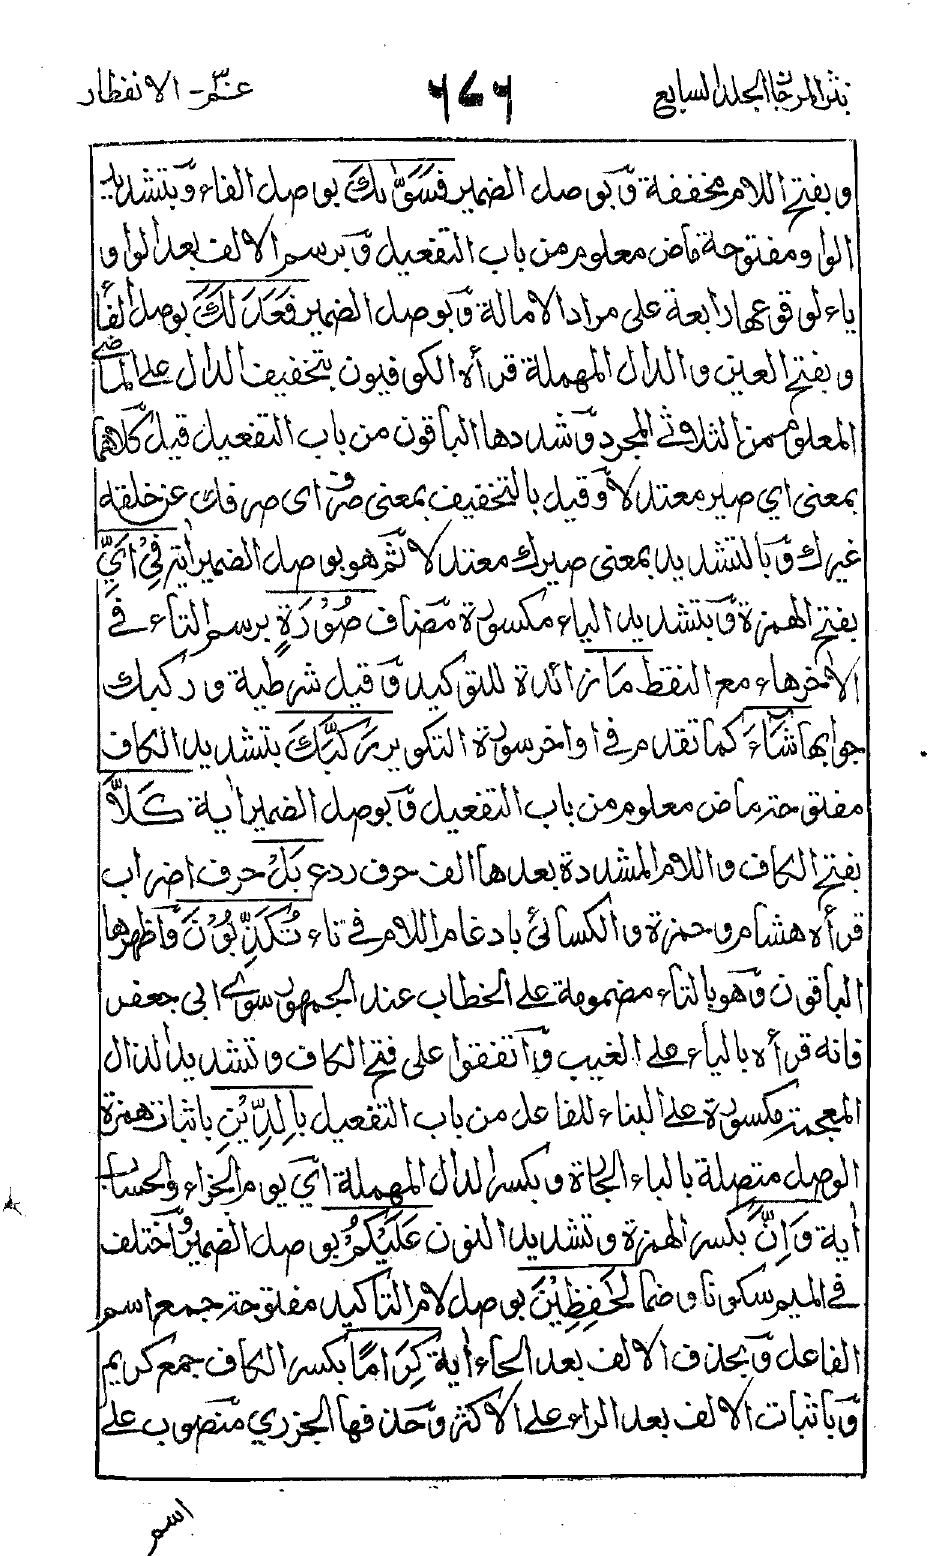 نثر المرجان المجلد السابع ٦٧٦ عمّ - الانفطار
وبفتح اللام مخففة وَبوصل الضمير فَسَوّٰىكَ بوصل الفاء وَبتشديد
الواو مفتوحة ماض معلوم من باب التفعيل وَبرسم الالف بعد الواو
ياء لوقوعها رابعة على مراد الامالة وَبوصل الضمير فَعَدَلَكَ بوصل الفاء
وبفتح العين والدال المهملة قرأه الكوفيون بتخفيف الدال على الماضي
المعلوم من الثلاثي المجرد وَشددها الباقون من باب التفعيل قيل كلاهما
بمعنى اي صير معتدلا وَقيل بالتخفيف بمعنى صرف اى صرفك عن خلقة
غيرك وَبالتشديد بمعنى صيرك معتدلا ثم هو بوصل الضمير اية فِيْ اَيِّ
بفتح الهمزة وَبتشديد الياء مكسورة مضاف صُوْرَةٍ برسم التاء في
الاخر هاء مع النقط مَا زائدة للتوكيد وَقيل شرطية وركبك
جوابها شَآءَ كما تقدم في اواخر سورة التكوير رَكَّبَكَ بتشديد الكاف
مفتوحة ماض معلوم من باب التفعيل وَبوصل الضمير اية كَلَّا
بفتح الكاف واللام المشددة بعدها الف حرف ردع بَلْ حرف اضراب
قرأه هشام وحمزة والكسائي بادغام اللام في تاء تُكَذِّبُوْنَ وَاظهرها
الباقون وَهو بالتاء مضمومة على الخطاب عند الجمهور سوى ابى جعفر
فانه قرأه بالياء على الغيب وَاتفقوا على فتح الكاف وتشديد الذال
المعجمة مكسورة على البناء للفاعل من باب التفعيل بِالدِّيْنِ باثبات همزة
الوصل متصلة بالباء الجارة وبكسر الدال المهملة اي يوم الجزاء والحساب
أية وَاِنَّ بكسر الهمزة وتشديد النون عَلَيْكُمْ بوصل الضمير وَاختلف
في الميم سكونا وضما لَحٰفِظِيْنَ بوصل لام التاكيد مفتوحة جمع اسم
الفاعل وَبحذف الالف بعد الحاء أية كِرَامًا بكسر الكاف جمع كريم
وَباثبات الالف بعد الراء على الاكثر وَحذفها الجزري منصوب على
اسم